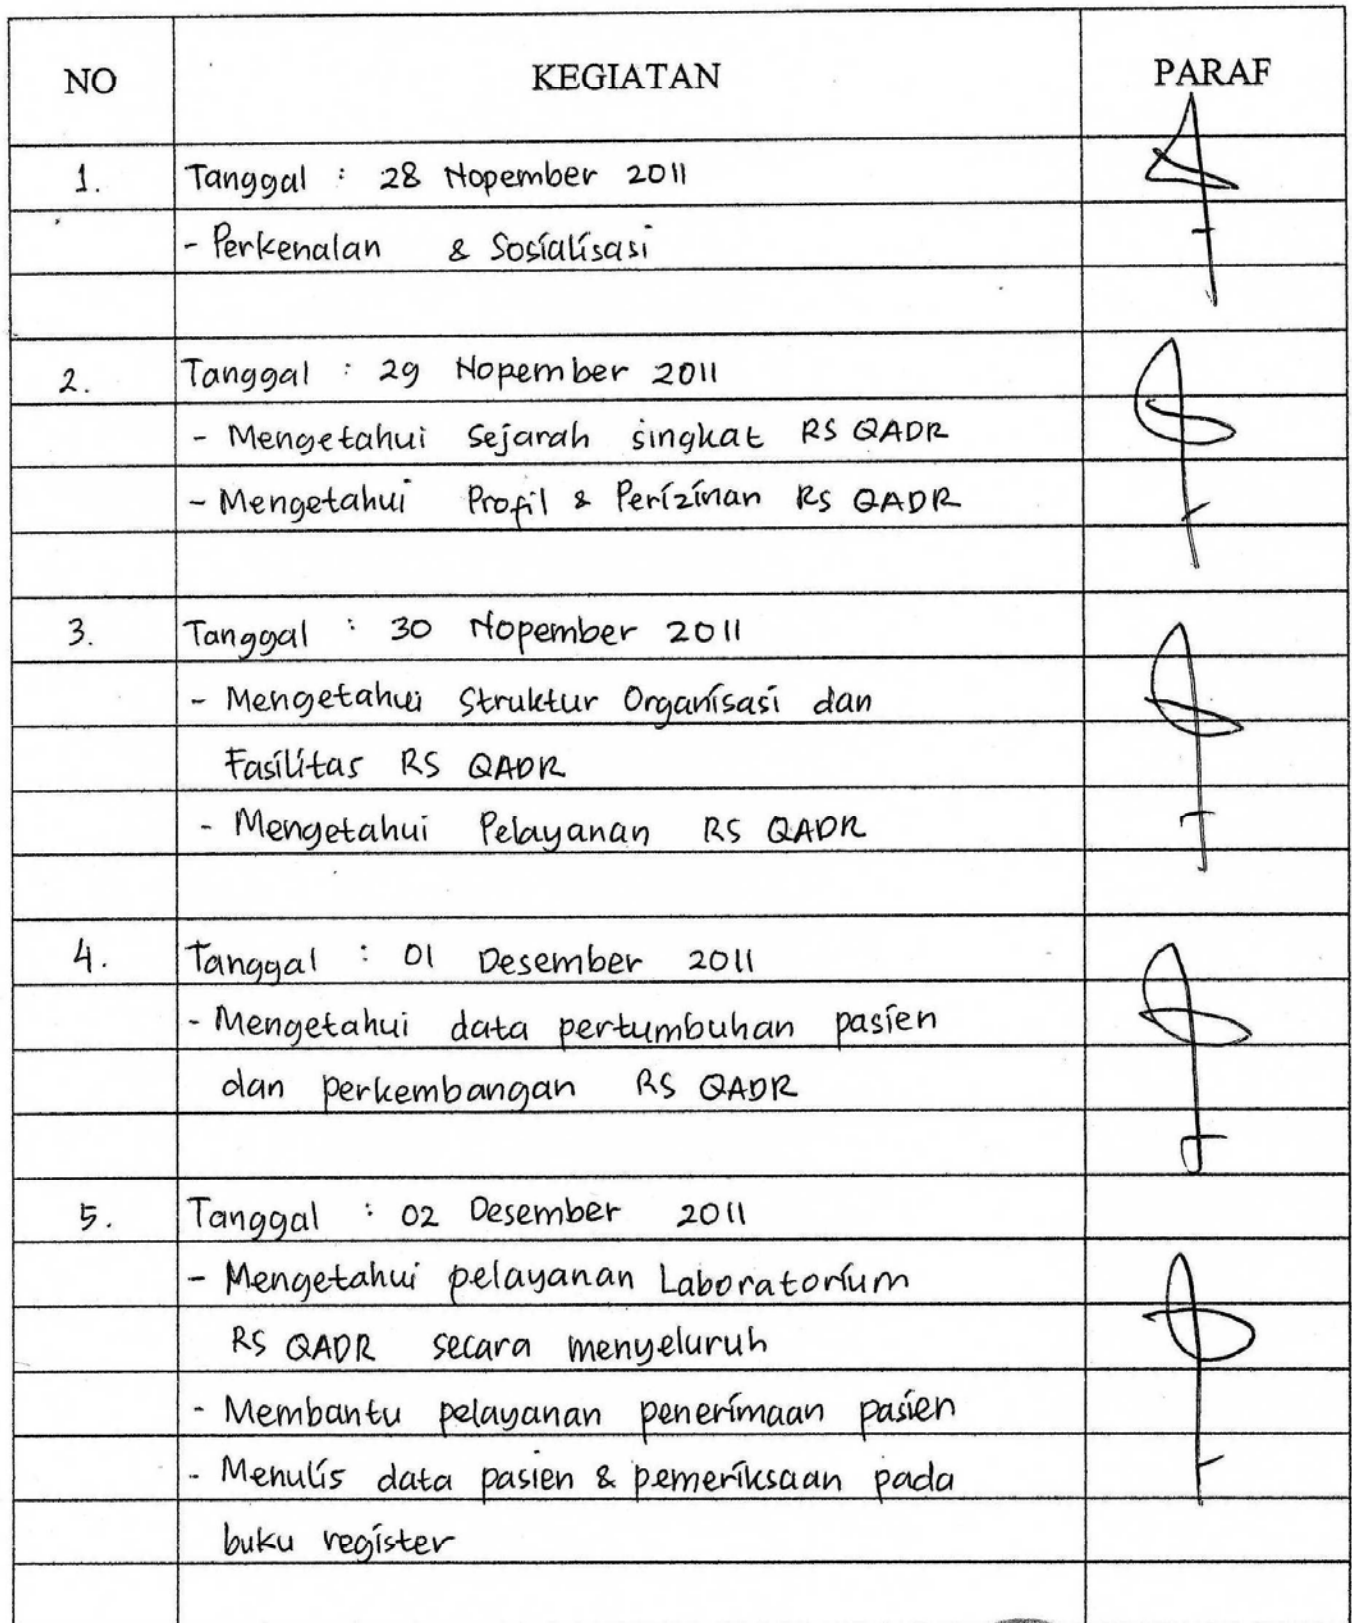 NO KEGIATAN PARAF
1. Tanggal : 28 Nopember 2011
- Perkenalan & Sosialisasi
2. Tanggal : 29 Nopember 2011
- Mengetahui Sejarah singkat RS QADR
- Mengetahui Profil & Perizinan RS QADR
3. Tanggal : 30 Nopember 2011
- Mengetahui Struktur Organisasi dan
Fasilitas RS QADR
- Mengetahui Pelayanan RS QADR
4. Tanggal : 01 Desember 2011
- Mengetahui data pertumbuhan pasien
dan perkembangan RS QADR
5. Tanggal : 02 Desember 2011
- Mengetahui pelayanan Laboratorium
RS QADR secara menyeluruh
- Membantu pelayanan penerimaan pasien
- Menulis data pasien & pemeriksaan pada
buku register